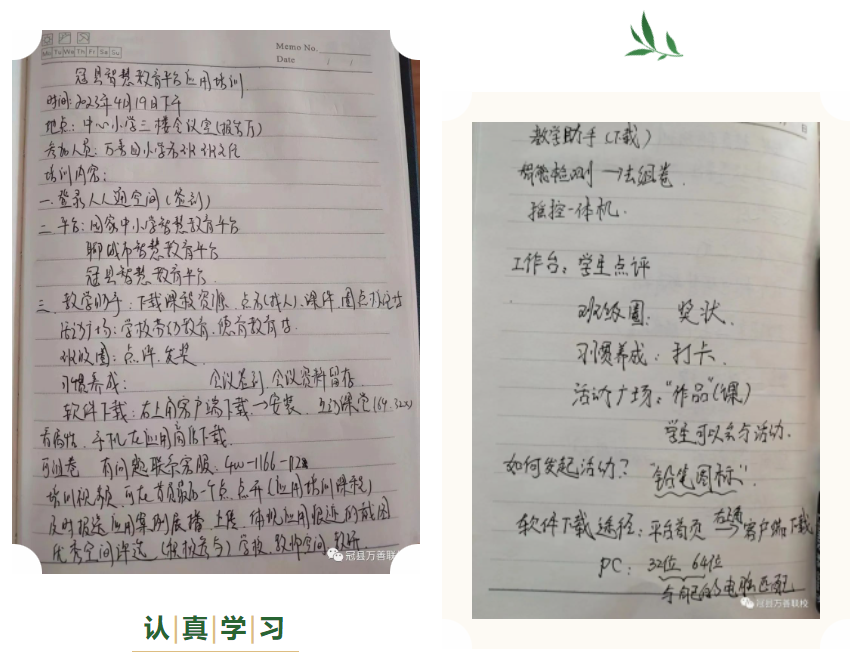 Memo No.
Date
Mo Tu We Th Fr Sa Su
冠县智慧教育平台应用培训
时间:2023年4月19日下午
地点:中心小学三楼会议室(报告厅)
参加人员:万善回小学
培训内容:
一.登录人人通空间(签到)
二.平台:国家中小学智慧教育平台
聊城市智慧教育平台
冠县智慧教育平台
三.教学助手:下载课程资源.点名(找人).课件.圈点
活动广场:学校劳动教育.德育教育
班级圈:点评.发奖
习惯养成: 会议签到.会议资料留存
软件下载:右上角客户端下载→安装.互动课堂(64.32位)
看属性.手机在应用商店下载
可组卷 有问题联系客服:400-1166-
培训视频.可在首页最后一个点.点开(应用培训课程)
及时报送应用案例展播.上传.体现应用报送的截图
优秀空间评选(积极参与)学校.教师空间.教研
冠县万善联校
教学助手(下载)
智能检测→去组卷.
摇控一体机.
工作台:学生点评
班级圈:奖状.
习惯养成:打卡.
活动广场:"作品"(课)
学生可以参与活动.
如何发起活动?"铅笔图标".
软件下载途径:平台首页 右上角→客户端下载
PC:32位 64位
与自己的电脑匹配
冠县万善联校
认真学习